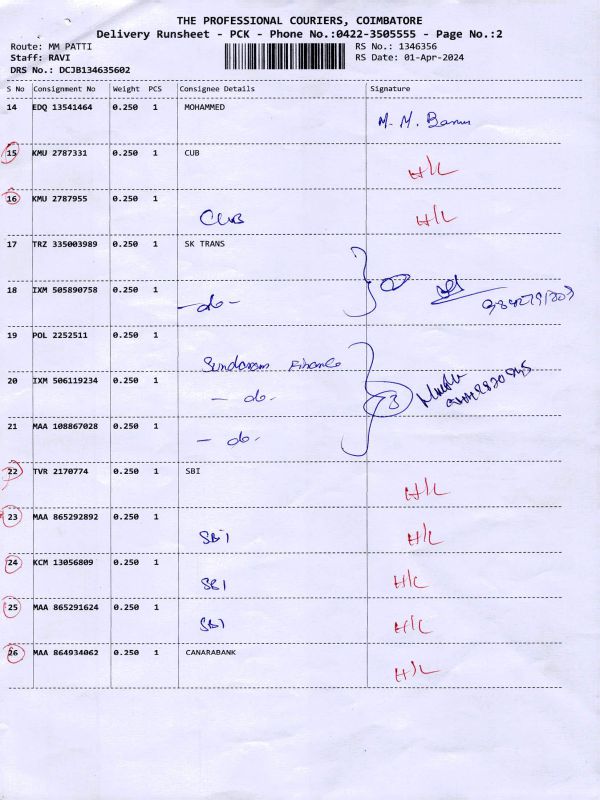 THE PROFESSIONAL COURIERS, COIMBATORE
Delivery Runsheet - PCK - Phone No.:0422-3505555 - Page No.:2
Route: MM PATTI RS No.: 1346356
Staff: RAVI RS Date: 01-Apr-2024
DRS No.: DCJB134635602
S No Consignment No Weight PCS Consignee Details Signature
14 EDQ 13541464 0.250 1 MOHAMMED
M. M. Banu
15 KMU 2787331 0.250 1 CUB
H/L
16 KMU 2787955 0.250 1
CUB H/L
17 TRZ 335003989 0.250 1 SK TRANS
18 IXM 505890758 0.250 1
- do -
19 POL 2252511 0.250 1
Sundaram Finance
20 IXM 506119234 0.250 1
- do - 3
21 MAA 108867028 0.250 1
- do -
22 TVR 2170774 0.250 1 SBI
H/L
23 MAA 865292892 0.250 1
SBI H/L
24 KCM 13056809 0.250 1
SBI H/L
25 MAA 865291624 0.250 1
SBI H/L
26 MAA 864934062 0.250 1 CANARABANK
H/L